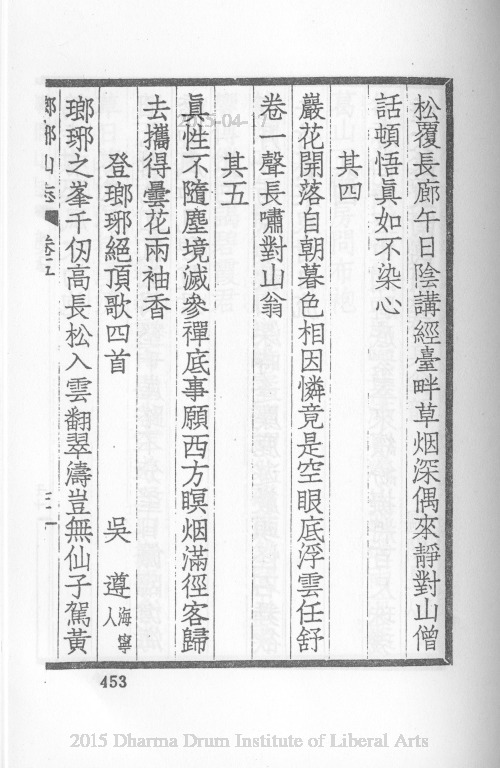 松覆長廊午日陰講經臺畔草烟深偶來靜對山僧
話頓悟眞如不染心
其四
巖花開落自朝暮色相因憐竟是空眼底浮雲任舒
卷一聲長嘯對山翁
其五
眞性不隨塵境滅參禪底事願西方瞑烟滿徑客歸
去攜得曇花兩袖香
登瑯琊絕頂歌四首 吳遵海寧人
瑯琊之峯千仞高長松入雲翻翠濤豈無仙子駕黃
瑯琊山志 卷五
453
2015-04-17
2015 Dharma Drum Institute of Liberal Arts